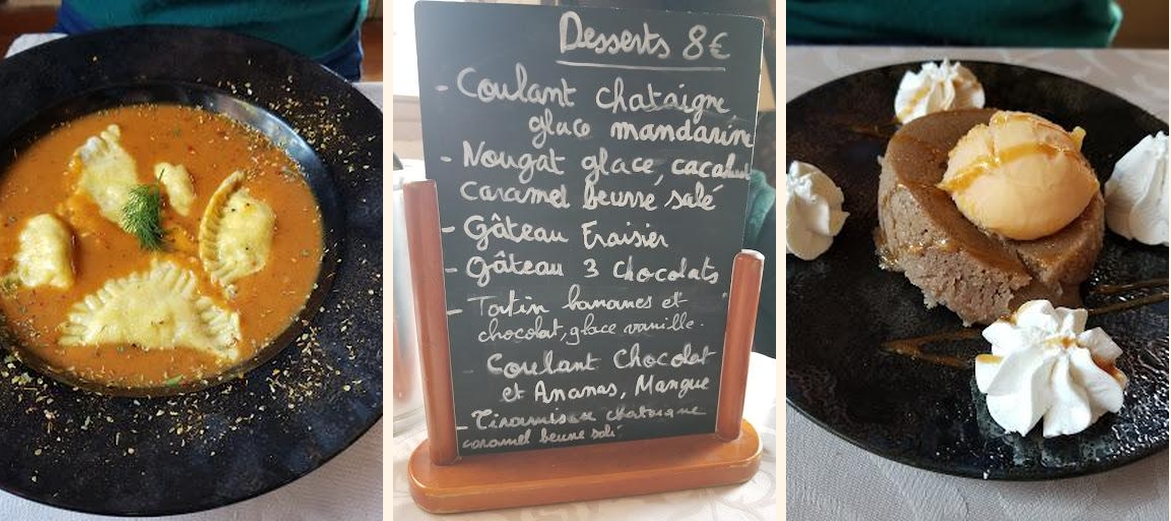 Desserts 8€
- Coulant chataigne
glace mandarine
- Nougat glace, cacahuet
caramel beurre salé
- Gâteau Fraisier
- Gâteau 3 chocolats
- Tatin bananes et
chocolat, glace vanille.
- Coulant Chocolat
et Ananas, Mangue
- Tiramisu chataigne
caramel beurre salé